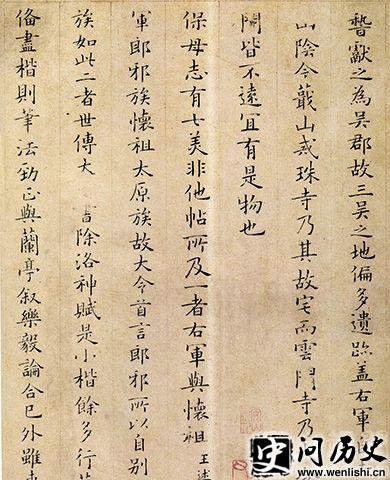 誓獻之為吳郡故三吳之地偏多遺跡盖右軍
山陰今蕺山戒珠寺乃其故宅而雲門寺乃
皆不遠宜有是物也
保母志有七美非他帖所及一者右軍與懷祖王述
軍郎邪族懷祖太原族故大令首言郎邪所以自别
族如此二者世傳大除洛神賦是小楷餘多行
俻盡楷則筆法勁正與蘭亭叙樂毅論合已外雖
问历史
www.wenlishi.com